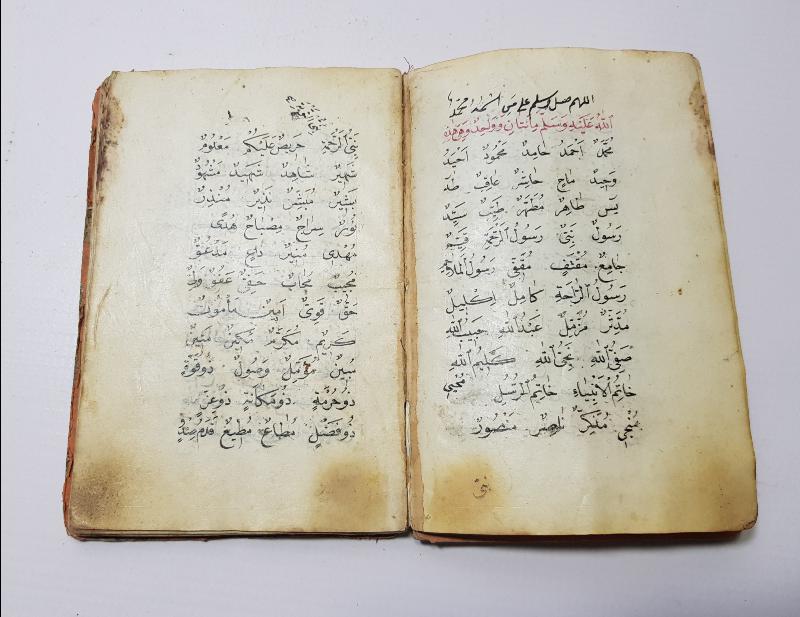 اللهم صل وسلم على من اسمه محمد
اللهُ عَلَيْهِ وَسَلَّمَ مِائتَانِ وَوَاحِدٌ وَهِيَ هٰذِهِ
مُحَمَّدٌ اَحْمَدُ حَامِدٌ مَحْمُودٌ اَحْيَدُ
وَحِيدٌ مَاحٍ حَاشِرٌ عَاقِبٌ طٰهٰ
يٰس طَاهِرٌ مُطَهَّرٌ طَيِّبٌ سَيِّدٌ
رَسُولٌ نَبِيٌّ رَسُولُ الرَّحْمَةِ قَيِّمٌ
جَامِعٌ مُقْتَفٍ مُقَفًّى رَسُولُ الْمَلَاحِمِ
رَسُولُ الرَّاحَةِ كَامِلٌ اِكْلِيلٌ
مُدَّثِّرٌ مُزَّمِّلٌ عَبْدُ اللهِ حَبِيبُ اللهِ
صَفِيُّ اللهِ نَجِيُّ اللهِ كَلِيمُ اللهِ
خَاتِمُ الْاَنْبِيَاءِ خَاتِمُ الرُّسُلِ مُحْيِي
مُنْجِي مُذَكِّرٌ نَاصِرٌ مَنْصُورٌ
نبي
نَبِيُّ الرَّحْمَةِ حَرِيصٌ عَلَيْكُمْ مَعْلُومٌ
شَهِيرٌ شَاهِدٌ شَهِيدٌ مَشْهُودٌ
بَشِيرٌ مُبَشِّرٌ نَذِيرٌ مُنْذِرٌ
نُورٌ سِرَاجٌ مِصْبَاحٌ هُدًى
مُهْدًى مُنِيرٌ دَاعٍ مَدْعُوٌّ
مُجِيبٌ مُجَابٌ حَفِيٌّ عَفُوٌّ وَلِيٌّ
حَقٌّ قَوِيٌّ اَمِينٌ مَأْمُونٌ
كَرِيمٌ مُكَرَّمٌ مَكِينٌ مَتِينٌ
مُبِينٌ مُؤَمَّلٌ وَصُولٌ ذُو قُوَّةٍ
ذُو حُرْمَةٍ ذُو مَكَانَةٍ ذُو عِزٍّ
ذُو فَضْلٍ مُطَاعٌ مُطِيعٌ قَدَمُ صِدْقٍ